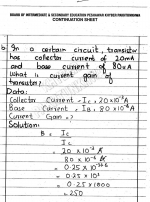 BOARD OF INTERMEDIATE & SECONDARY EDUCATION PESHAWAR KHYBER PAKHTUNKHWA
CONTINUATION SHEET
b In a certain circuit, transistor
has collector current of 20mA
and base current of 80uA
What is current gain of
transistor?
Data:
Collector Current = Ic = 20x10⁻³A
Base Current = IB = 80x10⁻⁶A
Current Gain = ?
Solution:
B = Ic
IB
= 20 x 10⁻³ A
80 x 10⁻⁶ A
= 0.25 x 10⁻³⁺⁶
= 0.25 x 10³
= 0.25 x 1000
= 250